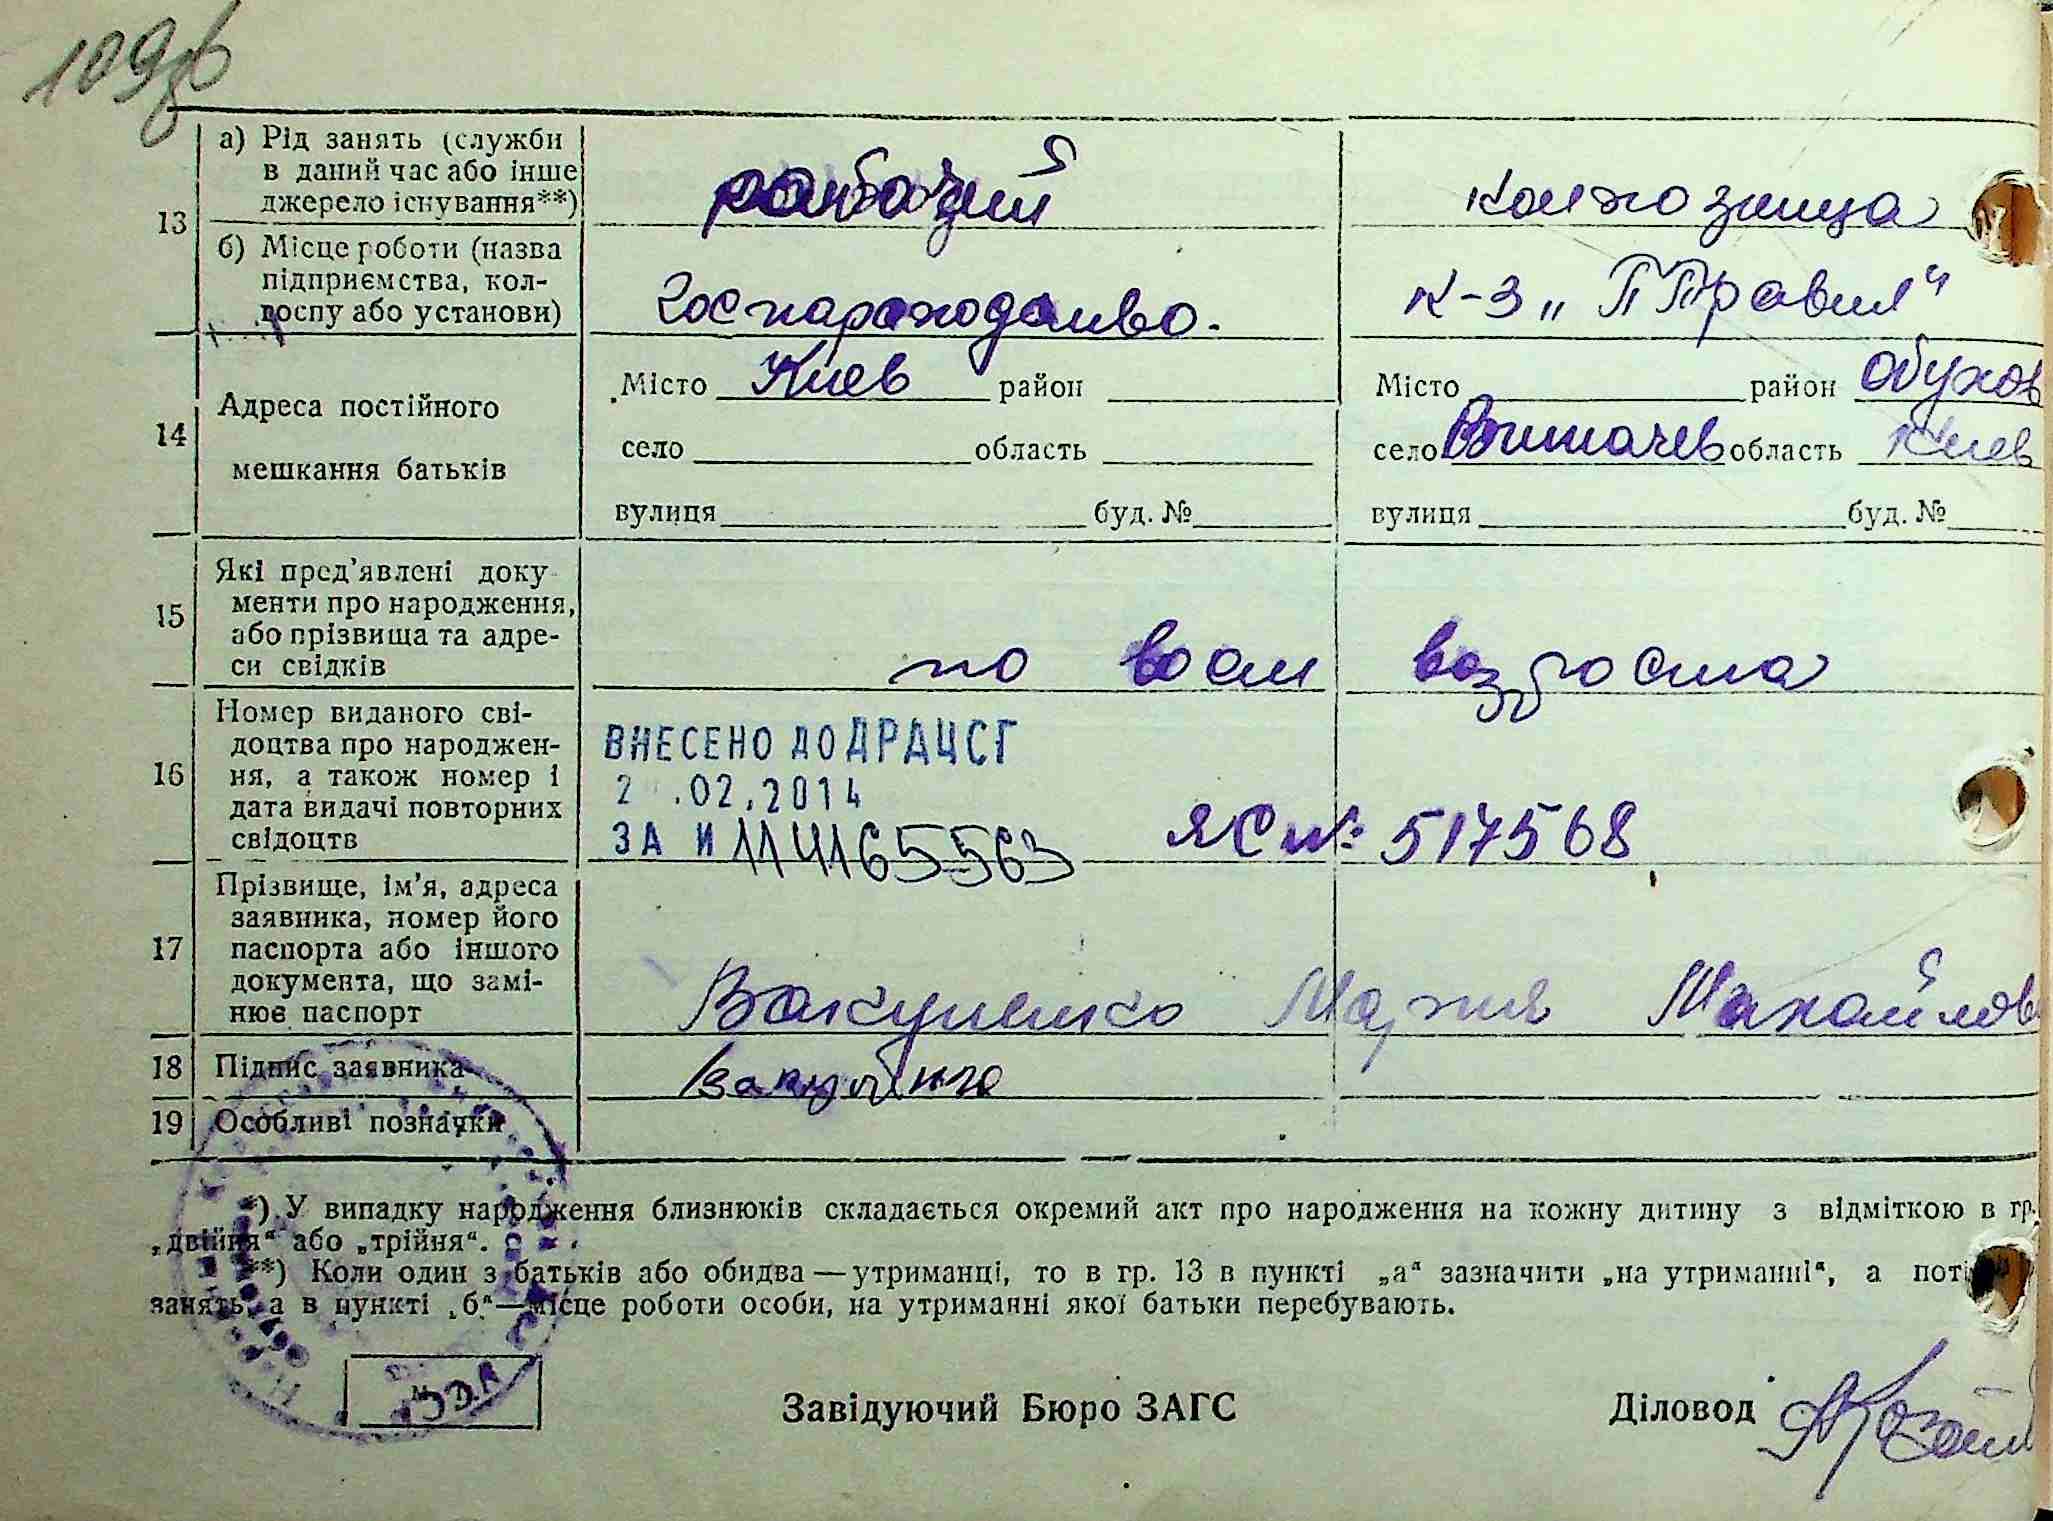 109
13 а) Рід занять (служби в даний час або інше джерело існування**) рабочий колхозница
б) Місце роботи (назва підприємства, колгоспу або установи) Госпароходство. к-з „Правил"
14 Адреса постійного мешкання батьків
Місто Киев район Місто район Обухов
село область село Витачев область Киев
вулиця буд. № вулиця буд. №
15 Які пред'явлені документи про народження, або прізвища та адреси свідків по возраста
16 Номер виданого свідоцтва про народження, а також номер і дата видачі повторних свідоцтв
ВНЕСЕНО ДО ДРАЦСГ
2 .02.2014
ЗА № 114165563 ЯС № 517568
17 Прізвище, ім'я, адреса заявника, номер його паспорта або іншого документа, що замінює паспорт Вакуленко Мария Михайлов
18 Підпис заявника Вакуленко
19 Особливі позначки
*) У випадку народження близнюків складається окремий акт про народження на кожну дитину з відміткою в гр.
„двійня" або „трійня".
**) Коли один з батьків або обидва — утриманці, то в гр. 13 в пункті „а" зазначити „на утриманні", а поті
занять, а в пункті „б"—місце роботи особи, на утриманні якої батьки перебувають.
М. П.
Завідуючий Бюро ЗАГС Діловод